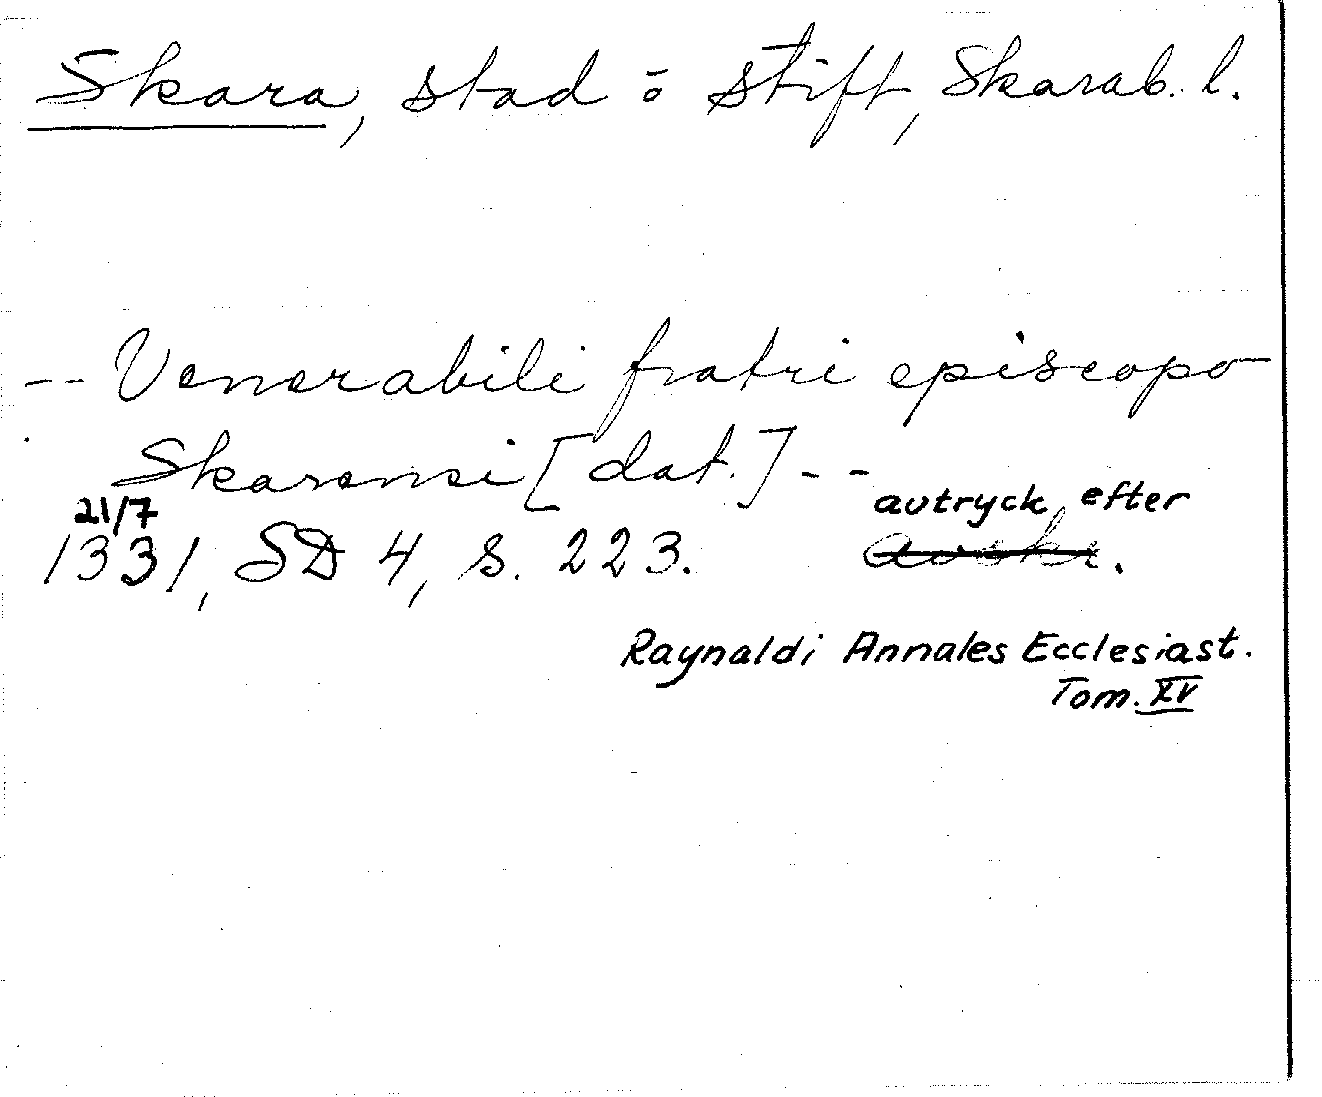 Skara, stad o stift, Skarab. l.
-- Venerabili fratri episcopo
Skarensi [dat.] --
21/7
1331, SD 4, s. 223. avtryck efter
Raynaldi Annales Ecclesiast.
Tom. XV